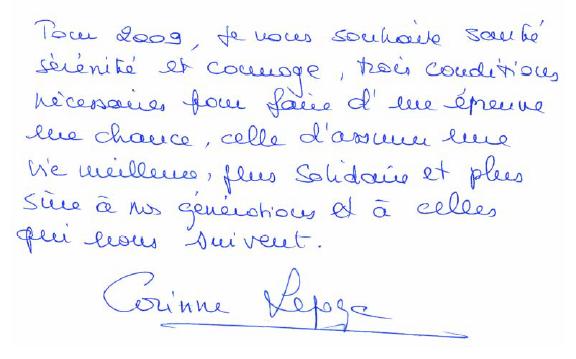 Pour 2009, je vous souhaite santé
sérénité et courage, trois conditions
nécessaires pour faire d'une épreuve
une chance, celle d'assurer une
vie meilleure, plus solidaire et plus
sûre à nos générations et à celles
qui nous suivent.
Corinne Lepage